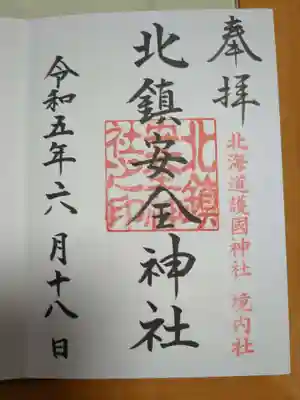 奉拝
北海道護國神社 境内社
北鎮安全神社
北鎮安全神社之印
令和五年六月十八日